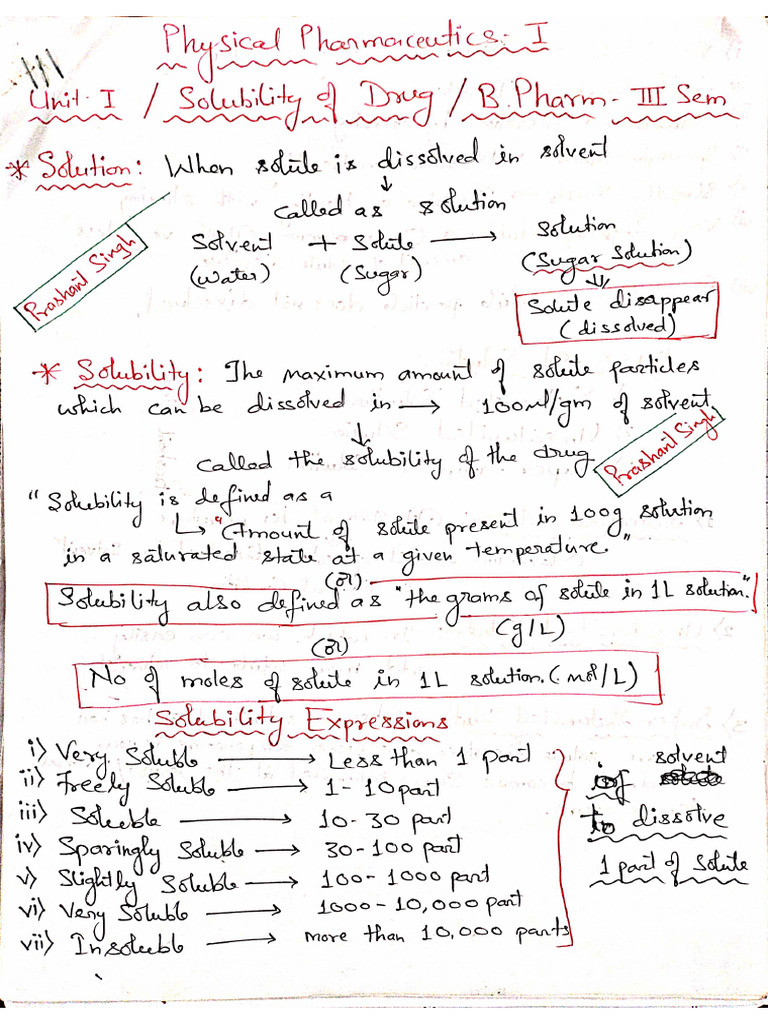 Physical Pharmaceutics-I
Unit-I / Solubility of Drug / B.Pharm- III Sem
* Solution: When solute is dissolved in solvent
↓
called as solution
Solvent + Solute → Solution
(Water) (Sugar) (Sugar Solution)
Prashant Singh
Solute disappear
(dissolved)
* Solubility: The maximum amount of solute particles
which can be dissolved in → 100ml/gm of solvent
↓
called the solubility of the drug
Prashant Singh
"Solubility is defined as a
↳ "Amount of solute present in 100g solution
in a saturated state at a given temperature."
(or)
Solubility also defined as "the grams of solute in 1L solution."
(g/L)
(or)
No of moles of solute in 1L solution. (mol/L)
Solubility Expressions
i) Very Soluble → Less than 1 part
ii) Freely Soluble → 1-10 part
iii) Soluble → 10-30 part
iv) Sparingly Soluble → 30-100 part
v) Slightly Soluble → 100-1000 part
vi) Very Soluble → 1000-10,000 part
vii) Insoluble → more than 10,000 parts
of solvent
to dissolve
1 part of Solute